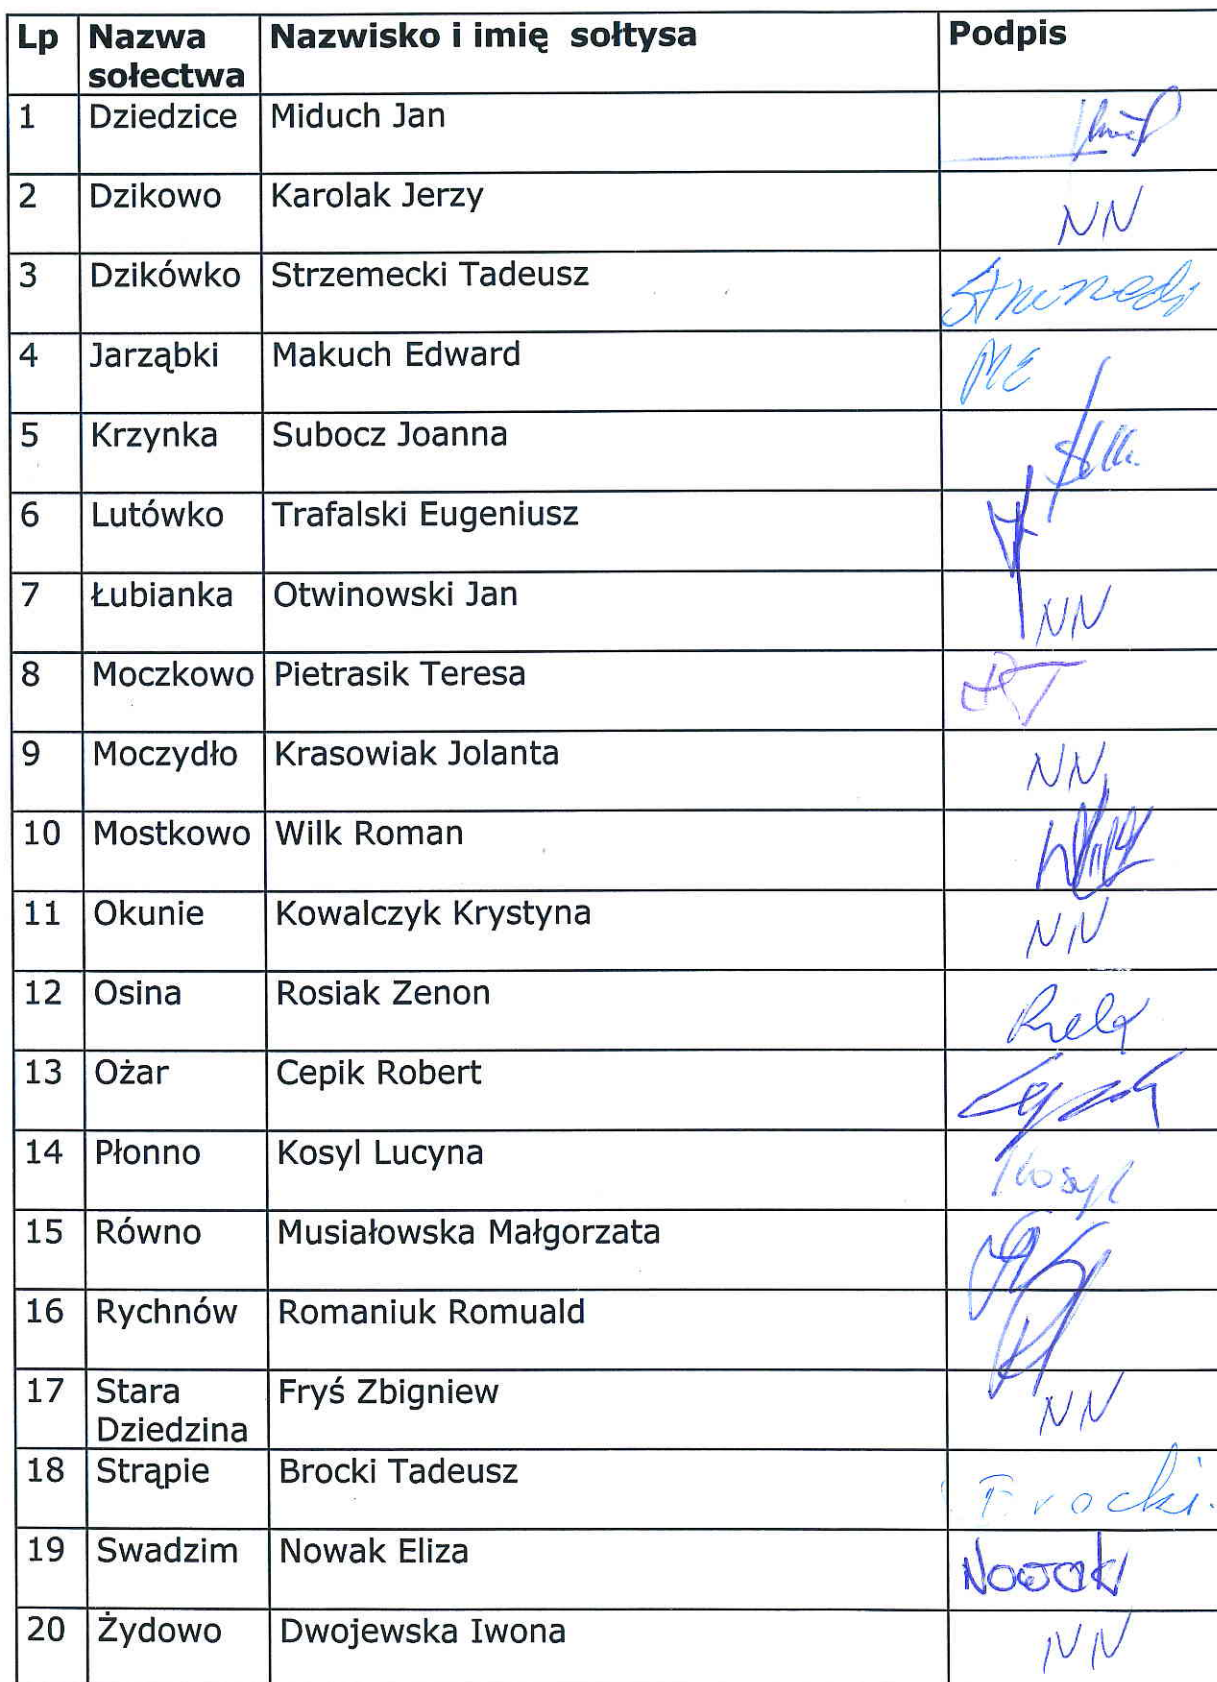 Lp Nazwa sołectwa Nazwisko i imię sołtysa Podpis
1 Dziedzice Miduch Jan
2 Dzikowo Karolak Jerzy NN
3 Dzikówko Strzemecki Tadeusz
4 Jarząbki Makuch Edward ME
5 Krzynka Subocz Joanna
6 Lutówko Trafalski Eugeniusz
7 Łubianka Otwinowski Jan NN
8 Moczkowo Pietrasik Teresa PT
9 Moczydło Krasowiak Jolanta NN
10 Mostkowo Wilk Roman
11 Okunie Kowalczyk Krystyna NN
12 Osina Rosiak Zenon
13 Ożar Cepik Robert
14 Płonno Kosyl Lucyna Kosyl
15 Równo Musiałowska Małgorzata
16 Rychnów Romaniuk Romuald
17 Stara Dziedzina Fryś Zbigniew NN
18 Strąpie Brocki Tadeusz Brocki.
19 Swadzim Nowak Eliza Nowak
20 Żydowo Dwojewska Iwona NN